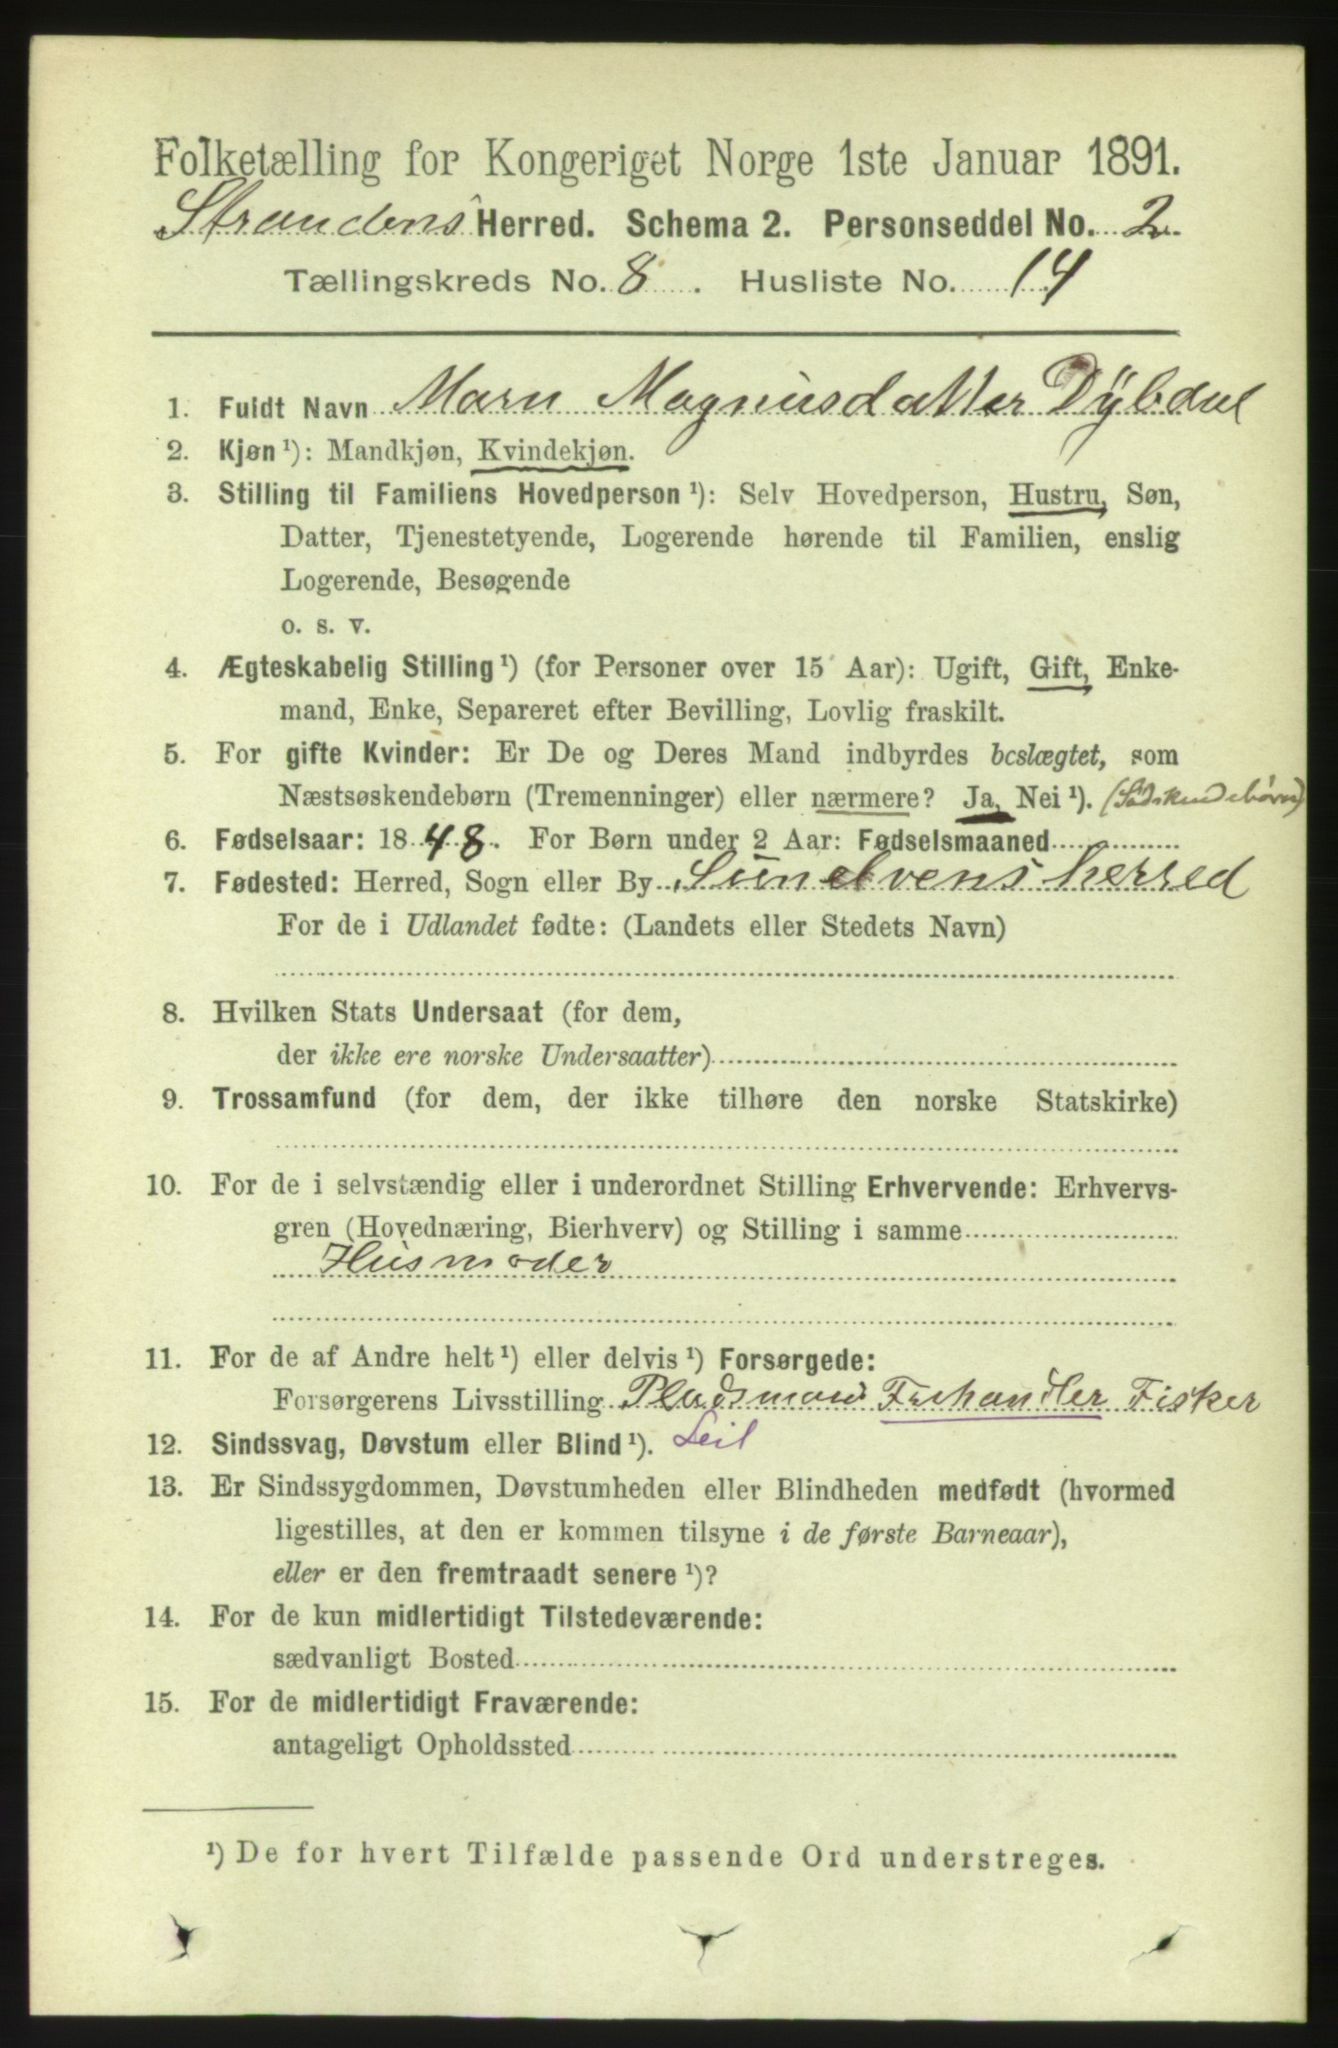 Folketælling for Kongeriget Norge 1ste Januar 1891.
Strandens Herred. Schema 2. Personseddel No. 2.
Tællingskreds No. 8. Husliste No. 14
1. Fuldt Navn Marn Magnusdatter Dÿbdal
2. Kjøn ¹): Mandkjøn, Kvindekjøn.
3. Stilling til Familiens Hovedperson ¹): Selv Hovedperson, Hustru, Søn,
Datter, Tjenestetyende, Logerende hørende til Familien, enslig
Logerende, Besøgende
o. s. v.
4. Ægteskabelig Stilling ¹) (for Personer over 15 Aar): Ugift, Gift, Enke-
mand, Enke, Separeret efter Bevilling, Lovlig fraskilt.
5. For gifte Kvinder: Er De og Deres Mand indbyrdes beslægtet, som
Næstsøskendebørn (Tremenninger) eller nærmere? Ja, Nei ¹). (Sødskendebørn)
6. Fødselsaar: 1848. For Børn under 2 Aar: Fødselsmaaned
7. Fødested: Herred, Sogn eller By Sunelvens herred
For de i Udlandet fødte: (Landets eller Stedets Navn)
8. Hvilken Stats Undersaat (for dem,
der ikke ere norske Undersaatter)
9. Trossamfund (for dem, der ikke tilhøre den norske Statskirke)
10. For de i selvstændig eller i underordnet Stilling Erhvervende: Erhvervs-
gren (Hovednæring, Bierhverv) og Stilling i samme
Husmoder
11. For de af Andre helt ¹) eller delvis ¹) Forsørgede:
Forsørgerens Livsstilling Pladsmand Fehandler Fisker
12. Sindssvag, Døvstum eller Blind ¹). Leil
13. Er Sindssygdommen, Døvstumheden eller Blindheden medfødt (hvormed
ligestilles, at den er kommen tilsyne i de første Barneaar),
eller er den fremtraadt senere ¹)?
14. For de kun midlertidigt Tilstedeværende:
sædvanligt Bosted
15. For de midlertidigt Fraværende:
antageligt Opholdssted
¹) De for hvert Tilfælde passende Ord understreges.